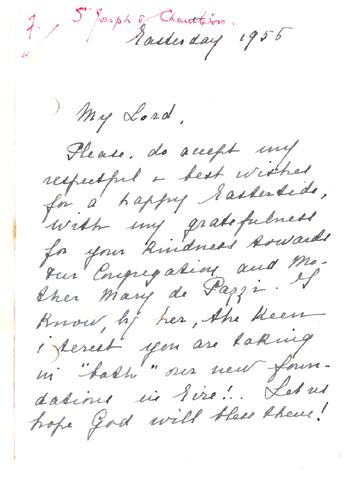 7. St Joseph's Chambéry.
Easterday 1955
My Lord,
Please, do accept my
respectful & best wishes
for a happy Eastertide,
with my gratefulness
for your kindness towards
our Congregation and Mo-
ther Mary de Pazzi. I
know, by her, the keen
interest you are taking
in "both" our new foun-
dations in Eire!.. Let us
hope God will bless them!